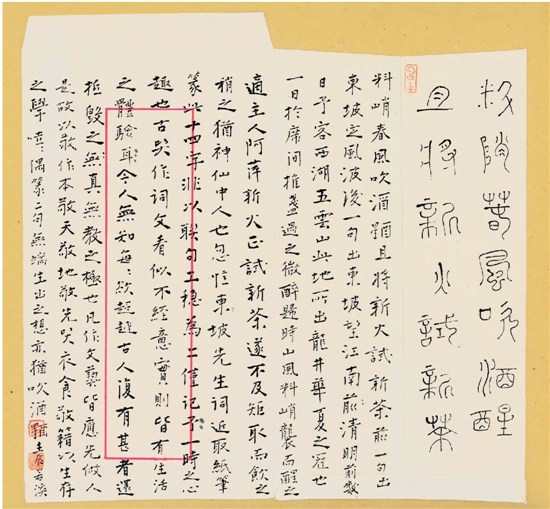 料峭春風吹酒醒
且將新火試新茶
料峭春風吹酒醒且將新火試新茶前一句出
東坡定風波後一句出東坡望江南前清明前數
日予客西湖五雲山此地所出龍井華夏之冠也
一日於席間推盞過之微醉歸時山風料峭襲而醒之
適主人阿萍新火正試新茶遂不及矩取而飲之
稍之猶神仙中人也忽憶東坡先生詞近取紙筆
篆此十四字非以聯句工穩為二僅記予一時之心
趣也古賢作詞文看似不經意實則皆有生活
之體驗耳今人無知每每欲超越古人復有甚者還
抵毀之無真無教之極也凡作文藝皆應先做人
是故以敬作本敬天敬地敬先賢衣食敬籍以生存
之學嘻偶篆二句無端生出之想亦猶吹酒醒壬辰